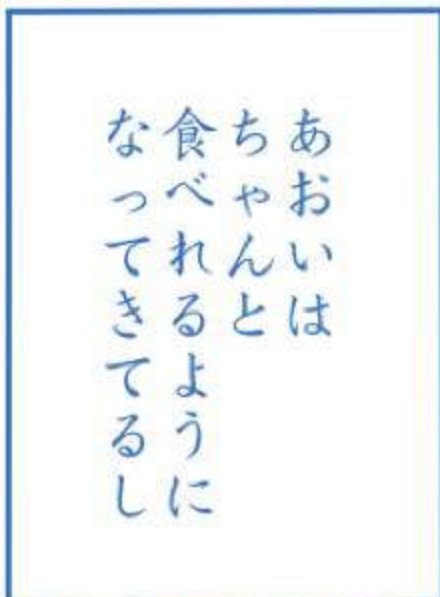 あおいは
ちゃんと
食べれるように
なってきてるし